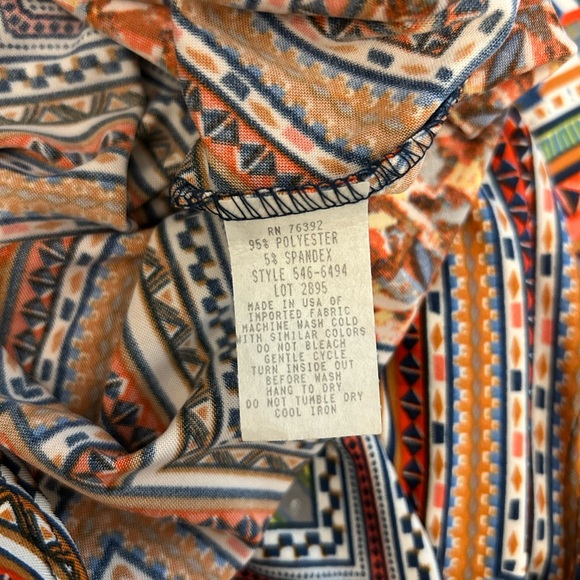 RN 76392
95% POLYESTER
5% SPANDEX
STYLE 546-6494
LOT 2895
MADE IN USA OF
IMPORTED FABRIC
MACHINE WASH COLD
WITH SIMILAR COLORS
DO NOT BLEACH
GENTLE CYCLE
TURN INSIDE OUT
BEFORE WASH
HANG TO DRY
DO NOT TUMBLE DRY
COOL IRON